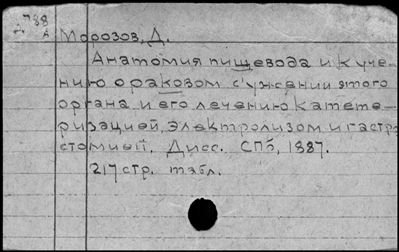 788
Морозов, Д.
Анатомия пищевода и к уче-
нию о раковом сужении этого
органа и его лечению катете-
ризацией, электролизом и гастро
стомией. Дисс. СПб, 1887.
217 стр. табл.